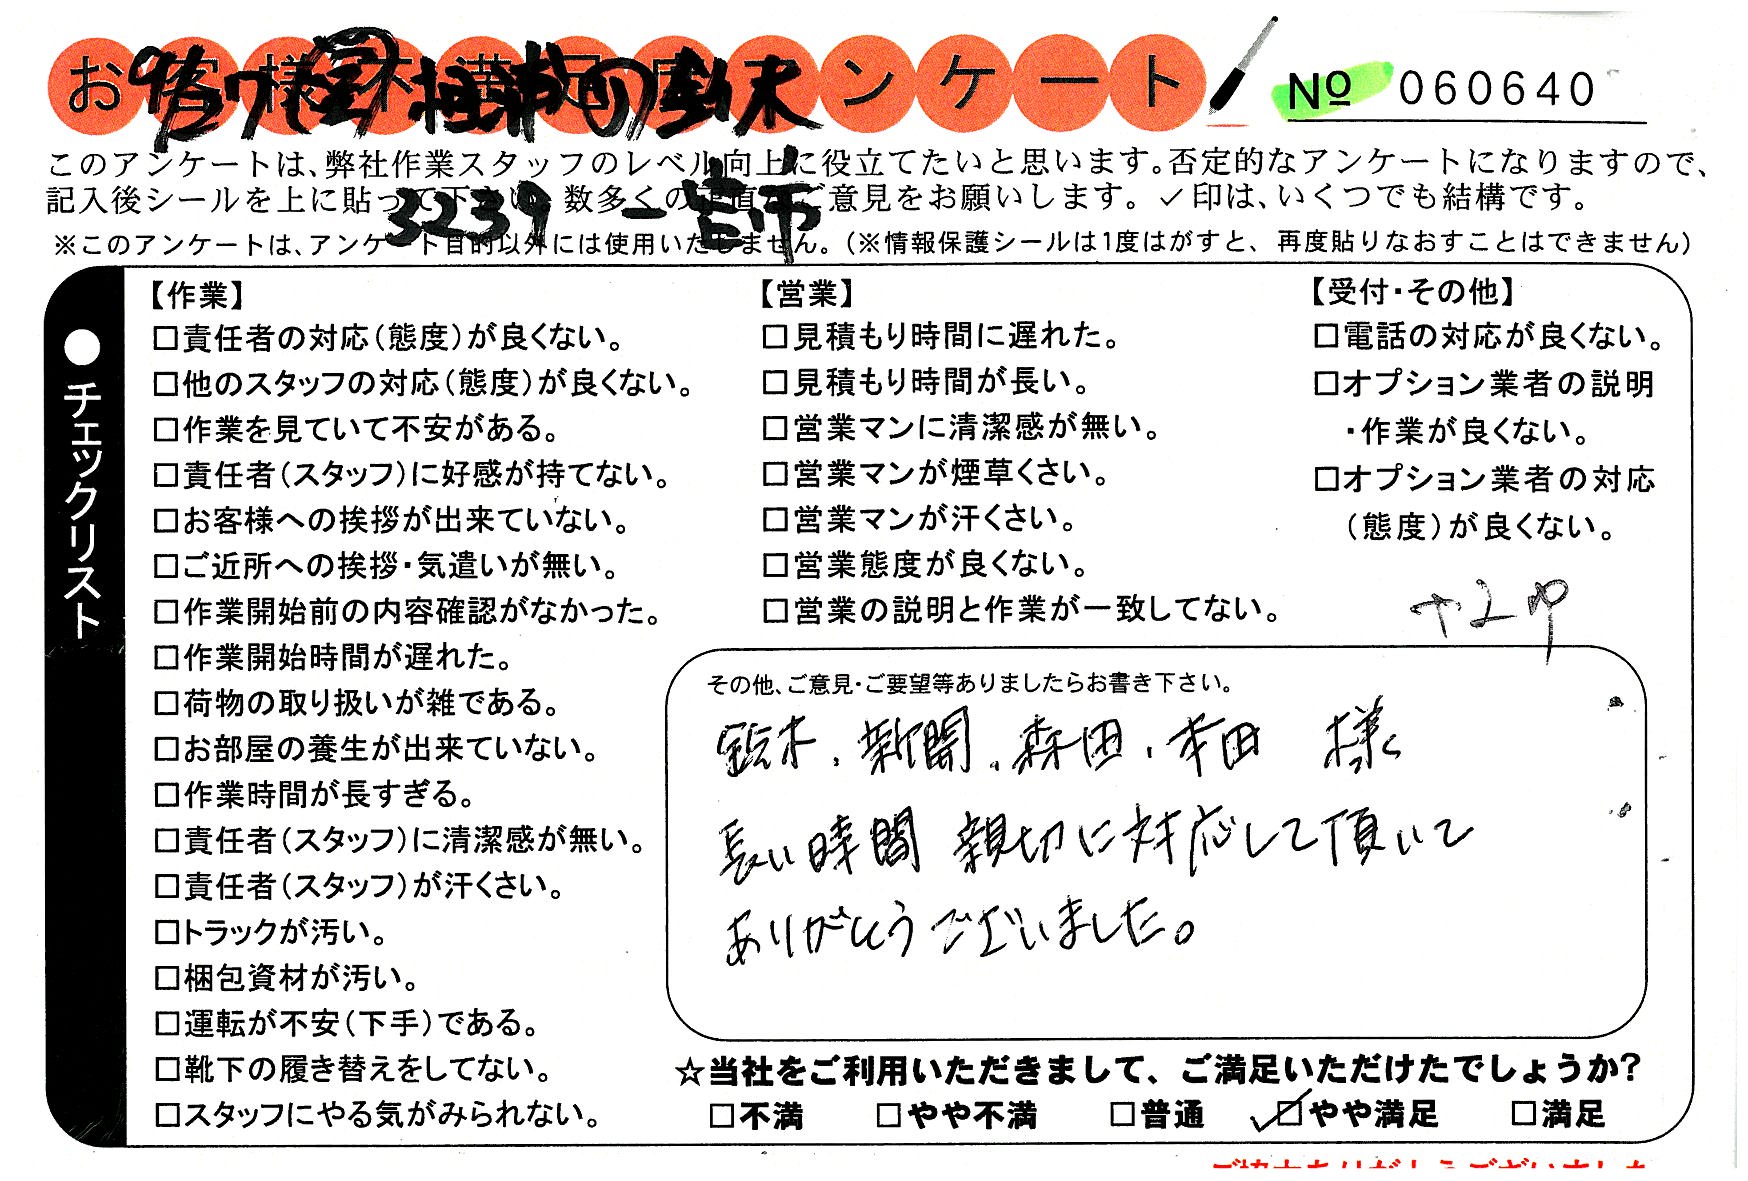 お客様不満足度アンケート
№ 060640
このアンケートは、弊社作業スタッフのレベル向上に役立てたいと思います。否定的なアンケートになりますので、
記入後シールを上に貼って下さい。数多くの正直なご意見をお願いします。✓印は、いくつでも結構です。
3239
※このアンケートは、アンケート目的以外には使用いたしません。（※情報保護シールは1度はがすと、再度貼りなおすことはできません）
●チェックリスト
【作業】
□責任者の対応（態度）が良くない。
□他のスタッフの対応（態度）が良くない。
□作業を見ていて不安がある。
□責任者（スタッフ）に好感が持てない。
□お客様への挨拶が出来ていない。
□ご近所への挨拶・気遣いが無い。
□作業開始前の内容確認がなかった。
□作業開始時間が遅れた。
□荷物の取り扱いが雑である。
□お部屋の養生が出来ていない。
□作業時間が長すぎる。
□責任者（スタッフ）に清潔感が無い。
□責任者（スタッフ）が汗くさい。
□トラックが汚い。
□梱包資材が汚い。
□運転が不安（下手）である。
□靴下の履き替えをしてない。
□スタッフにやる気がみられない。
【営業】
□見積もり時間に遅れた。
□見積もり時間が長い。
□営業マンに清潔感が無い。
□営業マンが煙草くさい。
□営業マンが汗くさい。
□営業態度が良くない。
□営業の説明と作業が一致してない。
【受付・その他】
□電話の対応が良くない。
□オプション業者の説明
・作業が良くない。
□オプション業者の対応
（態度）が良くない。
その他、ご意見・ご要望等ありましたらお書き下さい。
鈴木、新開、森田、本田 様
長い時間 親切に対応して頂いて
ありがとうございました。
☆当社をご利用いただきまして、ご満足いただけたでしょうか?
□不満 □やや不満 □普通 ☑やや満足 □満足
ご協力ありがとうございました